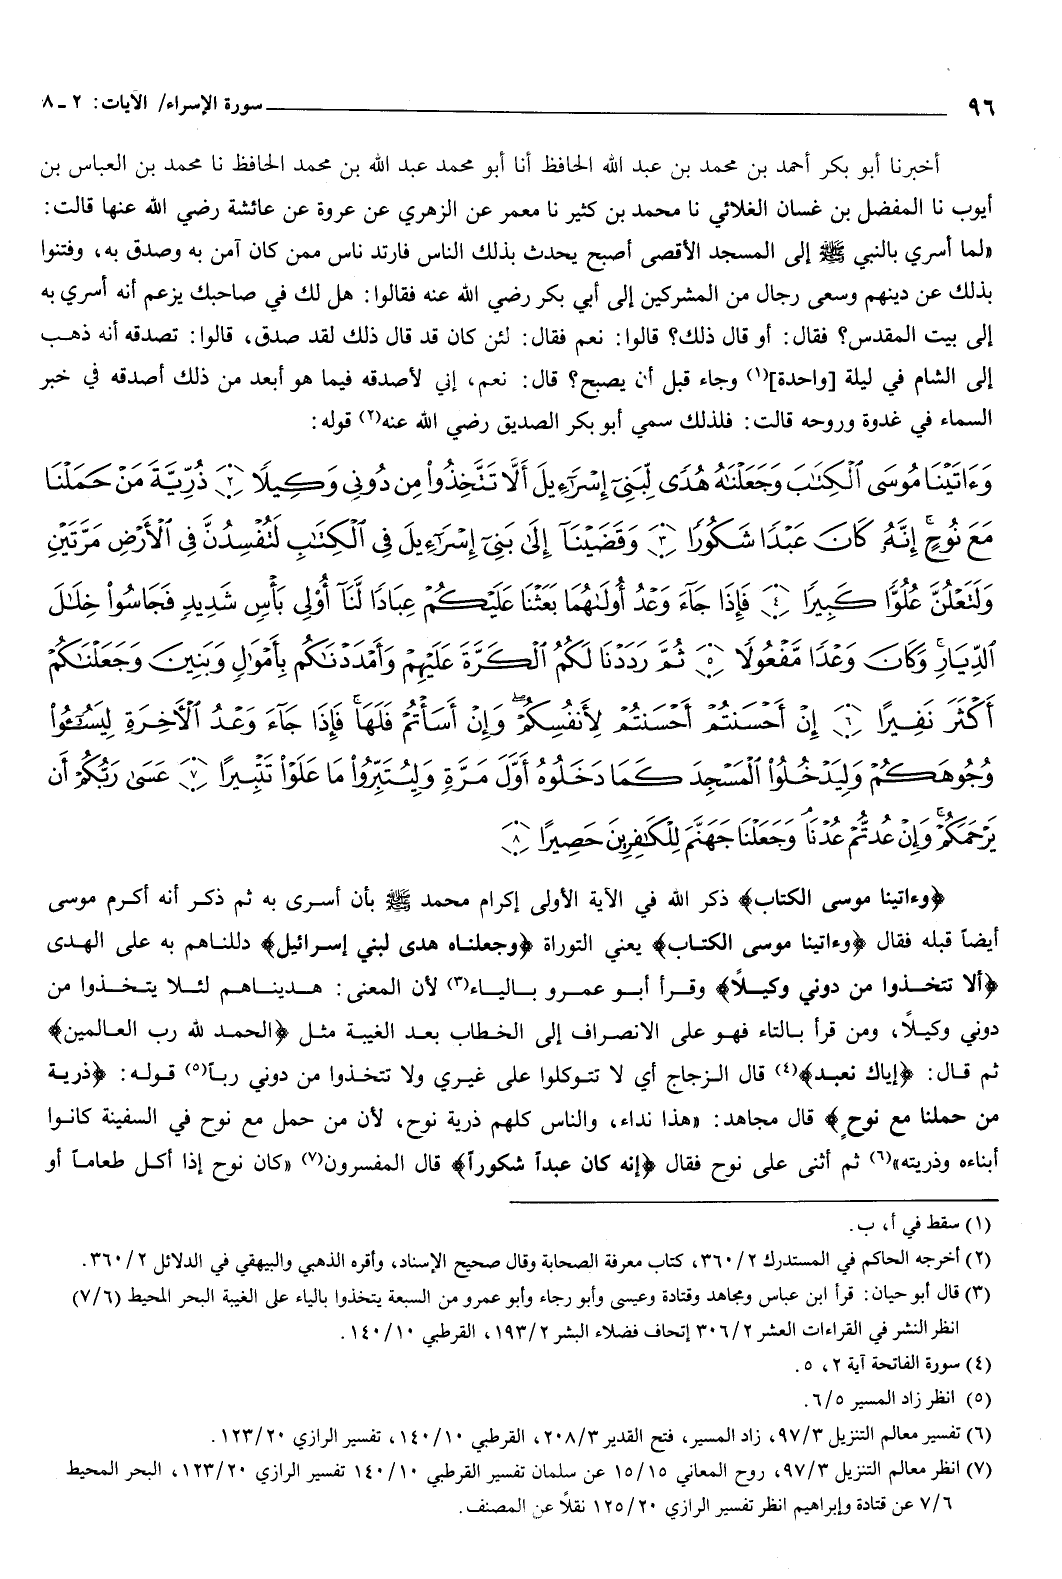 ٩٦ سورة الإسراء/ الآيات: ٢ ـ ٨
أخبرنا أبو بكر أحمد بن محمد بن عبد الله الحافظ أنا أبو محمد عبد الله بن محمد الحافظ نا محمد بن العباس بن
أيوب نا المفضل بن غسان الغلائي نا محمد بن كثير نا معمر عن الزهري عن عروة عن عائشة رضي الله عنها قالت:
«لما أسري بالنبي ﷺ إلى المسجد الأقصى أصبح يحدث بذلك الناس فارتد ناس ممن كان آمن به وصدق به، وفتنوا
بذلك عن دينهم وسعى رجال من المشركين إلى أبي بكر رضي الله عنه فقالوا: هل لك في صاحبك يزعم أنه أسري به
إلى بيت المقدس؟ فقال: أو قال ذلك؟ قالوا: نعم فقال: لئن كان قد قال ذلك لقد صدق، قالوا: تصدقه أنه ذهب
إلى الشام في ليلة [واحدة](١) وجاء قبل أن يصبح؟ قال: نعم، إني لأصدقه فيما هو أبعد من ذلك أصدقه في خبر
السماء في غدوة وروحه قالت: فلذلك سمي أبو بكر الصديق رضي الله عنه(٢) قوله:
وَءَاتَيْنَا مُوسَى ٱلْكِتَٰبَ وَجَعَلْنَٰهُ هُدًى لِّبَنِىٓ إِسْرَٰٓءِيلَ أَلَّا تَتَّخِذُوا۟ مِن دُونِى وَكِيلًا ﴿٢﴾ ذُرِّيَّةَ مَنْ حَمَلْنَا
مَعَ نُوحٍ ۚ إِنَّهُۥ كَانَ عَبْدًا شَكُورًا ﴿٣﴾ وَقَضَيْنَآ إِلَىٰ بَنِىٓ إِسْرَٰٓءِيلَ فِى ٱلْكِتَٰبِ لَتُفْسِدُنَّ فِى ٱلْأَرْضِ مَرَّتَيْنِ
وَلَتَعْلُنَّ عُلُوًّا كَبِيرًا ﴿٤﴾ فَإِذَا جَآءَ وَعْدُ أُولَىٰهُمَا بَعَثْنَا عَلَيْكُمْ عِبَادًا لَّنَآ أُو۟لِى بَأْسٍ شَدِيدٍ فَجَاسُوا۟ خِلَٰلَ
ٱلدِّيَارِ ۚ وَكَانَ وَعْدًا مَّفْعُولًا ﴿٥﴾ ثُمَّ رَدَدْنَا لَكُمُ ٱلْكَرَّةَ عَلَيْهِمْ وَأَمْدَدْنَٰكُم بِأَمْوَٰلٍ وَبَنِينَ وَجَعَلْنَٰكُمْ
أَكْثَرَ نَفِيرًا ﴿٦﴾ إِنْ أَحْسَنتُمْ أَحْسَنتُمْ لِأَنفُسِكُمْ ۖ وَإِنْ أَسَأْتُمْ فَلَهَا ۚ فَإِذَا جَآءَ وَعْدُ ٱلْءَاخِرَةِ لِيَسُۥٓـُٔوا۟
وُجُوهَكُمْ وَلِيَدْخُلُوا۟ ٱلْمَسْجِدَ كَمَا دَخَلُوهُ أَوَّلَ مَرَّةٍ وَلِيُتَبِّرُوا۟ مَا عَلَوْا۟ تَتْبِيرًا ﴿٧﴾ عَسَىٰ رَبُّكُمْ أَن
يَرْحَمَكُمْ ۚ وَإِنْ عُدتُّمْ عُدْنَا ۘ وَجَعَلْنَا جَهَنَّمَ لِلْكَٰفِرِينَ حَصِيرًا ﴿٨﴾
﴿وءاتينا موسى الكتاب﴾ ذكر الله في الآية الأولى إكرام محمد ﷺ بأن أسرى به ثم ذكر أنه أكرم موسى
أيضاً قبله فقال ﴿وءاتينا موسى الكتاب﴾ يعني التوراة ﴿وجعلناه هدى لبني إسرائيل﴾ دللناهم به على الهدى
﴿ألا تتخذوا من دوني وكيلاً﴾ وقرأ أبو عمرو بالياء(٣) لأن المعنى: هديناهم لئلا يتخذوا من
دوني وكيلاً، ومن قرأ بالتاء فهو على الانصراف إلى الخطاب بعد الغيبة مثل ﴿الحمد لله رب العالمين﴾
ثم قال: ﴿إياك نعبد﴾(٤) قال الزجاج أي لا تتوكلوا على غيري ولا تتخذوا من دوني رباً(٥) قوله: ﴿ذرية
من حملنا مع نوحٍ﴾ قال مجاهد: «هذا نداء، والناس كلهم ذرية نوح، لأن من حمل مع نوح في السفينة كانوا
أبناءه وذريته»(٦) ثم أثنى على نوح فقال ﴿إنه كان عبداً شكوراً﴾ قال المفسرون(٧) «كان نوح إذا أكل طعاماً أو
(١) سقط في أ، ب.
(٢) أخرجه الحاكم في المستدرك ٣٦٠/٢، كتاب معرفة الصحابة وقال صحيح الإسناد، وأقره الذهبي والبيهقي في الدلائل ٣٦٠/٢.
(٣) قال أبو حيان: قرأ ابن عباس ومجاهد وقتادة وعيسى وأبو رجاء وأبو عمرو من السبعة يتخذوا بالياء على الغيبة البحر المحيط (٧/٦)
انظر النشر في القراءات العشر ٣٠٦/٢ إتحاف فضلاء البشر ١٩٣/٢، القرطبي ١٤٠/١٠.
(٤) سورة الفاتحة آية ٢، ٥.
(٥) انظر زاد المسير ٦/٥.
(٦) تفسير معالم التنزيل ٩٧/٣، زاد المسير، فتح القدير ٢٠٨/٣، القرطبي ١٤٠/١٠، تفسير الرازي ١٢٣/٢٠.
(٧) انظر معالم التنزيل ٩٧/٣، روح المعاني ١٥/١٥ عن سلمان تفسير القرطبي ١٤٠/١٠ تفسير الرازي ١٢٣/٢٠، البحر المحيط
٧/٦ عن قتادة وإبراهيم انظر تفسير الرازي ١٢٥/٢٠ نقلاً عن المصنف.